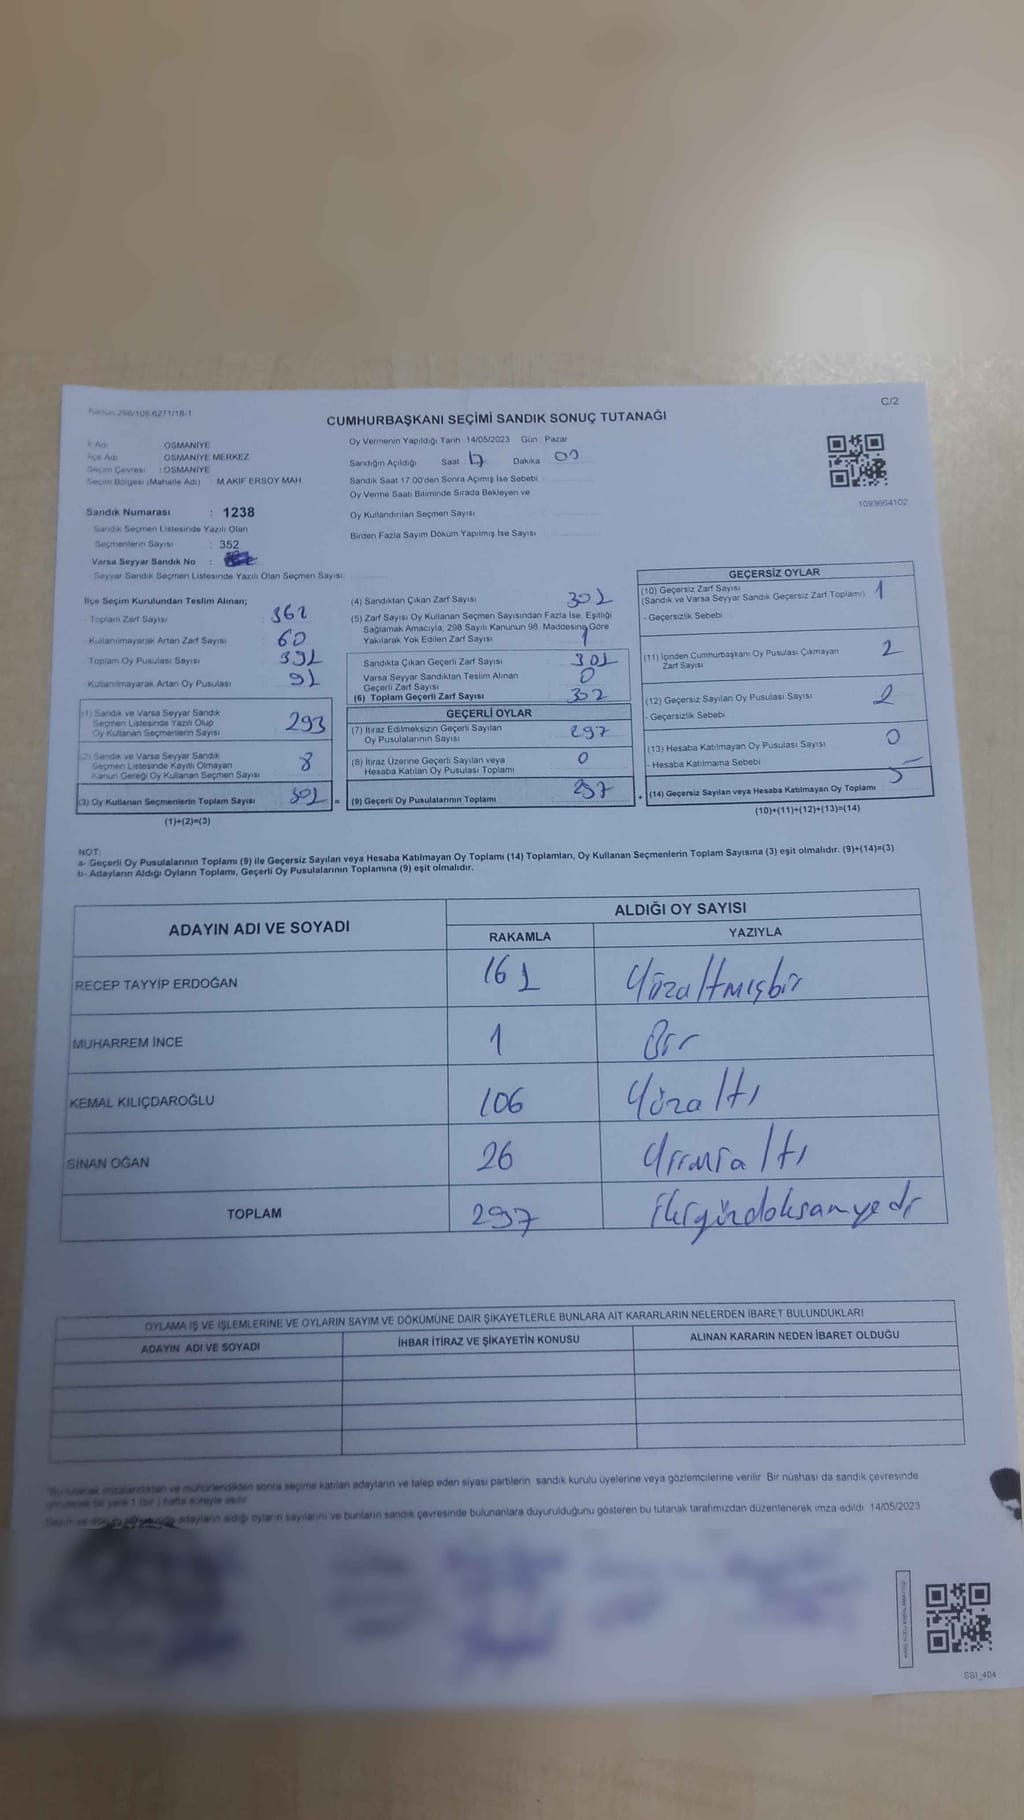 Kanun 298/106 6271/18-1
C/2
CUMHURBAŞKANI SEÇİMİ SANDIK SONUÇ TUTANAĞI
İl Adı OSMANİYE
İlçe Adı OSMANİYE MERKEZ
Seçim Çevresi : OSMANİYE
Seçim Bölgesi (Mahalle Adı) M.AKİF ERSOY MAH.
Sandık Numarası : 1238
Sandık Seçmen Listesinde Yazılı Olan
Seçmenlerin Sayısı : 352
Varsa Seyyar Sandık No :
Seyyar Sandık Seçmen Listesinde Yazılı Olan Seçmen Sayısı
Oy Vermenin Yapıldığı Tarih 14/05/2023 Gün : Pazar
Sandığın Açıldığı Saat 17 Dakika 00
Sandık Saat 17.00'den Sonra Açılmış İse Sebebi
Oy Verme Saati Bitiminde Sırada Bekleyen ve
Oy Kullandırılan Seçmen Sayısı
Birden Fazla Sayım Döküm Yapılmış İse Sayısı
1093664102
İlçe Seçim Kurulundan Teslim Alınan;
- Toplam Zarf Sayısı 362
- Kullanılmayarak Artan Zarf Sayısı 60
Toplam Oy Pusulası Sayısı 391
- Kullanılmayarak Artan Oy Pusulası 91
(1) Sandık ve Varsa Seyyar Sandık
Seçmen Listesinde Yazılı Olup
Oy Kullanan Seçmenlerin Sayısı 293
(2) Sandık ve Varsa Seyyar Sandık
Seçmen Listesinde Kayıtlı Olmayan
Kanun Gereği Oy Kullanan Seçmen Sayısı 8
(3) Oy Kullanan Seçmenlerin Toplam Sayısı 301 =
(1)+(2)=(3)
(4) Sandıktan Çıkan Zarf Sayısı 301
(5) Zarf Sayısı Oy Kullanan Seçmen Sayısından Fazla İse, Eşitliği
Sağlamak Amacıyla, 298 Sayılı Kanunun 98. Maddesine Göre
Yakılarak Yok Edilen Zarf Sayısı 1
Sandıkta Çıkan Geçerli Zarf Sayısı 301
Varsa Seyyar Sandıktan Teslim Alınan 0
Geçerli Zarf Sayısı
(6) Toplam Geçerli Zarf Sayısı 302
GEÇERLİ OYLAR
(7) İtiraz Edilmeksizin Geçerli Sayılan
Oy Pusulalarının Sayısı 297
(8) İtiraz Üzerine Geçerli Sayılan veya
Hesaba Katılan Oy Pusulası Toplamı 0
(9) Geçerli Oy Pusulalarının Toplamı 297 +
GEÇERSİZ OYLAR
(10) Geçersiz Zarf Sayısı
(Sandık ve Varsa Seyyar Sandık Geçersiz Zarf Toplamı) 1
- Geçersizlik Sebebi
(11) İçinden Cumhurbaşkanı Oy Pusulası Çıkmayan
Zarf Sayısı 2
(12) Geçersiz Sayılan Oy Pusulası Sayısı 2
- Geçersizlik Sebebi
(13) Hesaba Katılmayan Oy Pusulası Sayısı 0
- Hesaba Katılmama Sebebi
(14) Geçersiz Sayılan veya Hesaba Katılmayan Oy Toplamı 5
(10)+(11)+(12)+(13)=(14)
NOT:
a- Geçerli Oy Pusulalarının Toplamı (9) ile Geçersiz Sayılan veya Hesaba Katılmayan Oy Toplamı (14) Toplamları, Oy Kullanan Seçmenlerin Toplam Sayısına (3) eşit olmalıdır. (9)+(14)=(3)
b- Adayların Aldığı Oyların Toplamı, Geçerli Oy Pusulalarının Toplamına (9) eşit olmalıdır.
ADAYIN ADI VE SOYADI
ALDIĞI OY SAYISI
RAKAMLA YAZIYLA
RECEP TAYYİP ERDOĞAN 161 Yüzaltmışbir
MUHARREM İNCE 1 Bir
KEMAL KILIÇDAROĞLU 106 Yüzaltı
SİNAN OĞAN 26 Yirmialtı
TOPLAM 297 ikiyüzdoksanyedi
OYLAMA İŞ VE İŞLEMLERİNE VE OYLARIN SAYIM VE DÖKÜMÜNE DAİR ŞİKAYETLERLE BUNLARA AİT KARARLARIN NELERDEN İBARET BULUNDUKLARI
ADAYIN ADI VE SOYADI İHBAR İTİRAZ VE ŞİKAYETİN KONUSU ALINAN KARARIN NEDEN İBARET OLDUĞU
*Bu tutanak imzalandıktan ve mühürlendikten sonra seçime katılan adayların ve talep eden siyasi partilerin sandık kurulu üyelerine veya gözlemcilerine verilir. Bir nüshası da sandık çevresinde
görülecek bir yere 1 (bir) hafta süreyle asılır.
Sayım ve döküm adayların aldığı oyların sayılarını ve bunların sandık çevresinde bulunanlara duyurulduğunu gösteren bu tutanak tarafımızdan düzenlenerek imza edildi. 14/05/2023
SSI_404